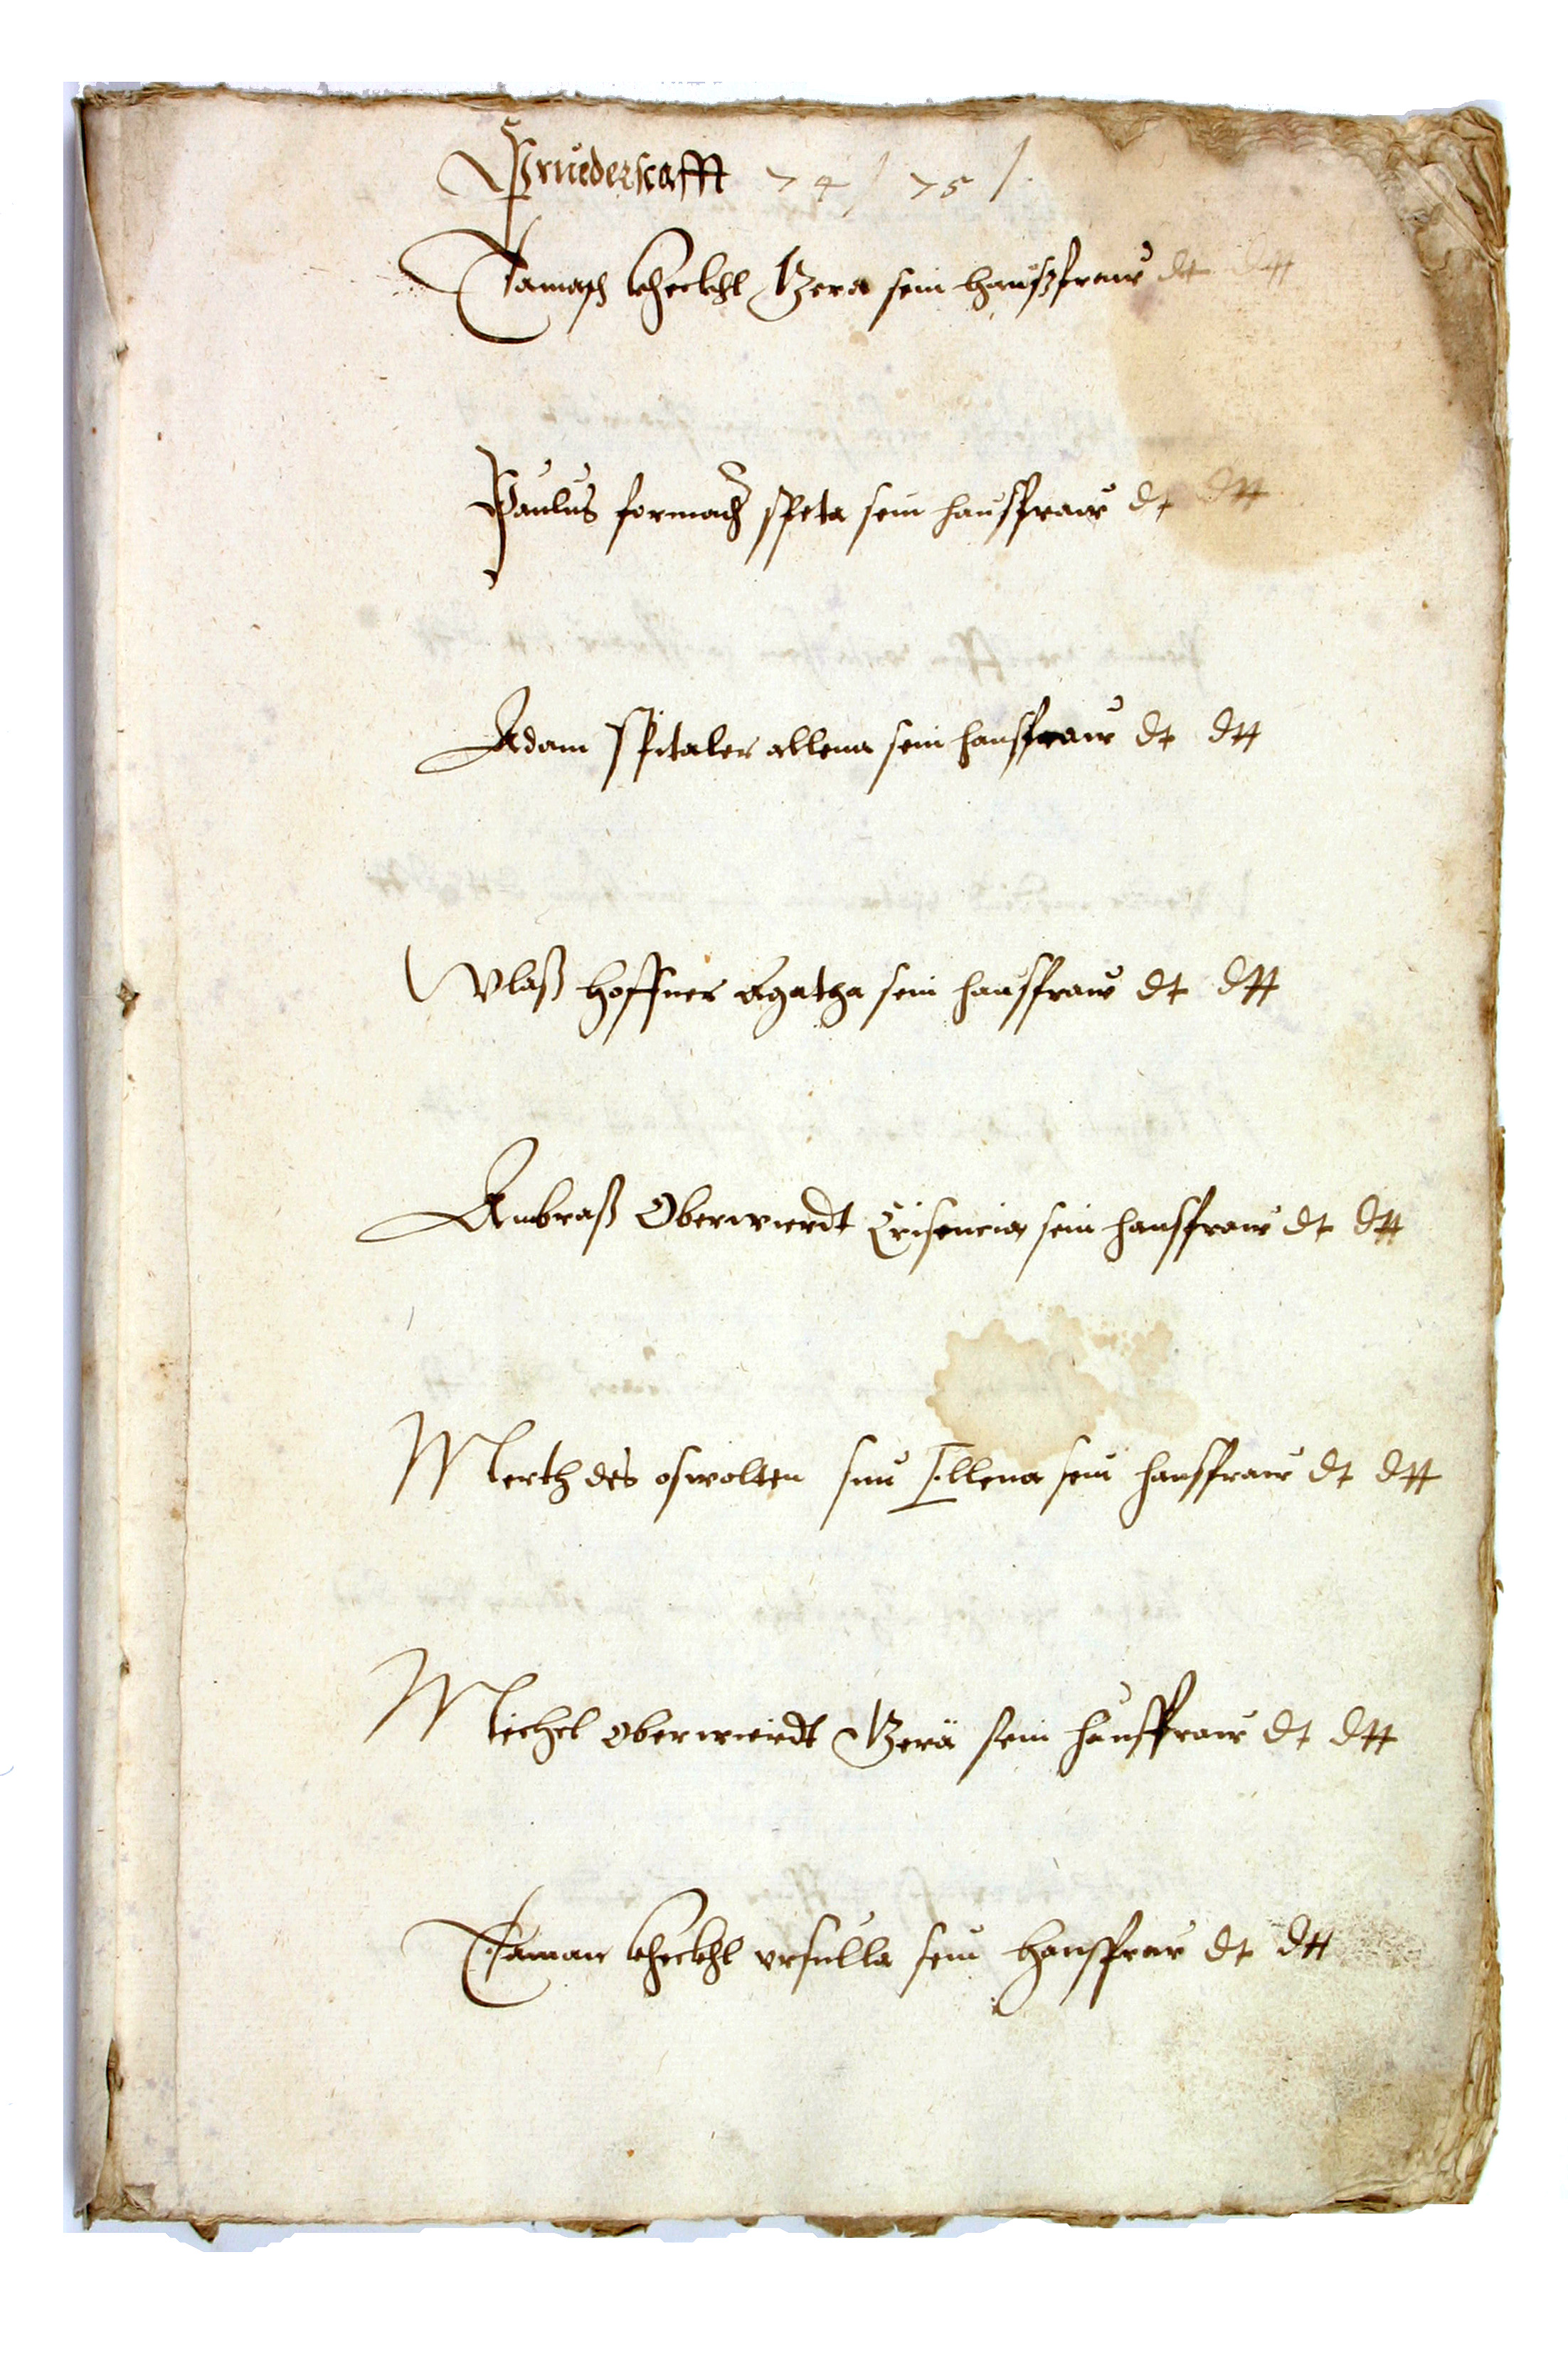 Pruederscafft 74 / 75 /.
Tamasch kheckhl Vera sein hauszfraw dt dtt
Paulus formacher speta sein hausfraw dt dtt
Adam spitaler allena sein hausfraw dt dtt
Vlaß hoffner Agatha sein hausfraw dt dtt
Anbraß Oberwierdt Crisencia sein hausfraw dt dtt
Merth des oswolten sun Illena sein hausfraw dt dtt
Michel oberwierdt Verä sein hausffraw dt dtt
Taman kheckhl vrsulla sein hausffraw dt dtt